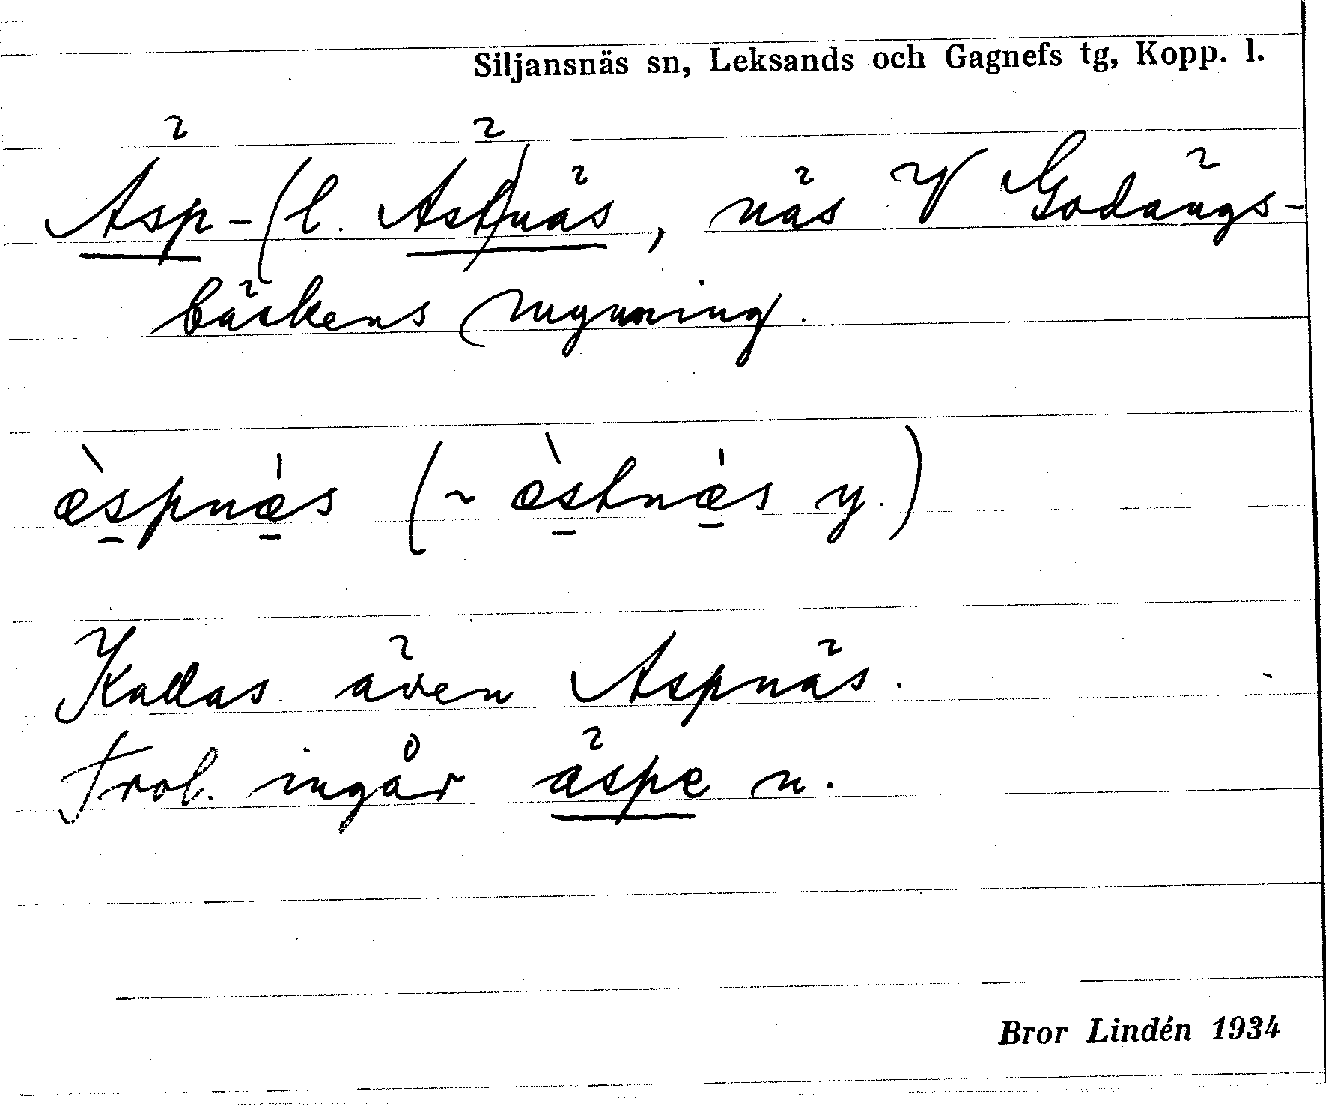 Siljansnäs sn, Leksands och Gagnefs tg, Kopp. l.
Äsp-(l. Äst)näs, näs V Godängs-
bäckens mynning.
æ̀spnæ̍s (~ æ̀stnæ̍s y.)
Kallas även Aspnäs.
Trol. ingår äspe n.
Bror Lindén 1934